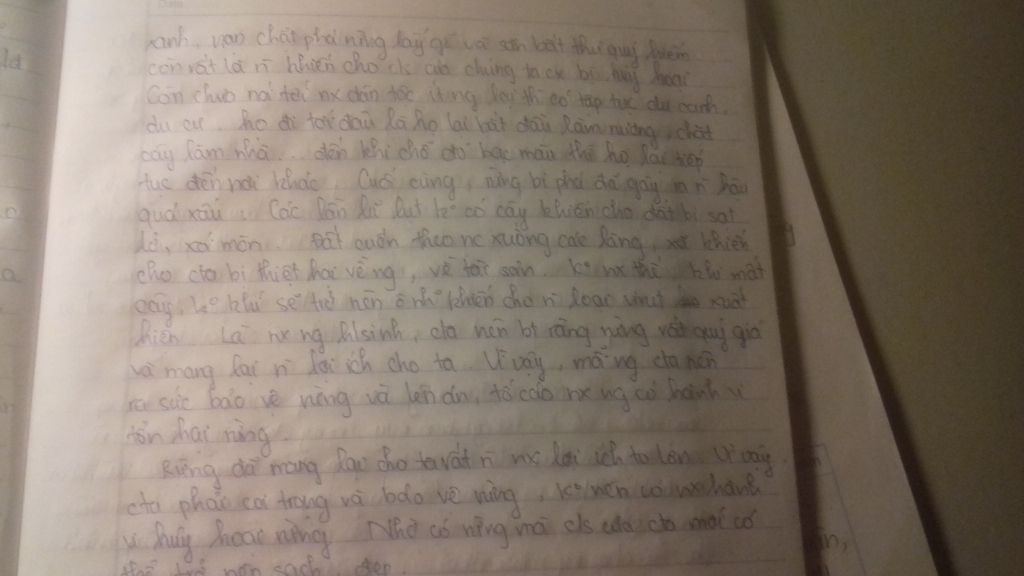 xanh, vào chặt phá rừng lấy gỗ và săn bắt thú quý hiếm
còn rất là n̄ khiến cho c/s của chúng ta cx bị huỷ hoại
Còn chưa nói tới nx dân tộc vùng lại thì có tập tục du canh
du cư. họ đi tới đâu là họ lại bắt đầu làm nương, chặt
cây làm nhà... đến khi chỗ đó bạc màu thì họ lại tiếp
tục đến nơi khác. Cuối cùng, rừng bị phá đã gây ra n̄ hậu
quả xấu. Các lần lũ lụt ko có cây khiến cho đất bị sạt
lở, xói mòn. Đất cuốn theo nc xuống các làng, xã khiến
cho cta bị thiệt hại về ng, về tài sản. Ko nx thế, khi mất
cây, ko khí sẽ trở nên ô nhiễm khiến cho n̄ loại virut xuất
hiện. Là nx ng h/sinh, cta nên bt rằng rừng rất quý giá
và mang lại n̄ lợi ích cho ta. Vì vậy, mỗi ng cta nên
ra sức bảo vệ rừng và lên án, tố cáo nx ng có hành vi
tổn hại rừng.
Rừng đã mang lại cho ta rất n̄ nx lợi ích to lớn. Vì vậy
cta phải coi trọng và bảo vệ rừng, ko nên có nx hành
vi hủy hoại rừng. Nhờ có rừng mà c/s của cta mới có
thể trở nên sạch, đẹp.